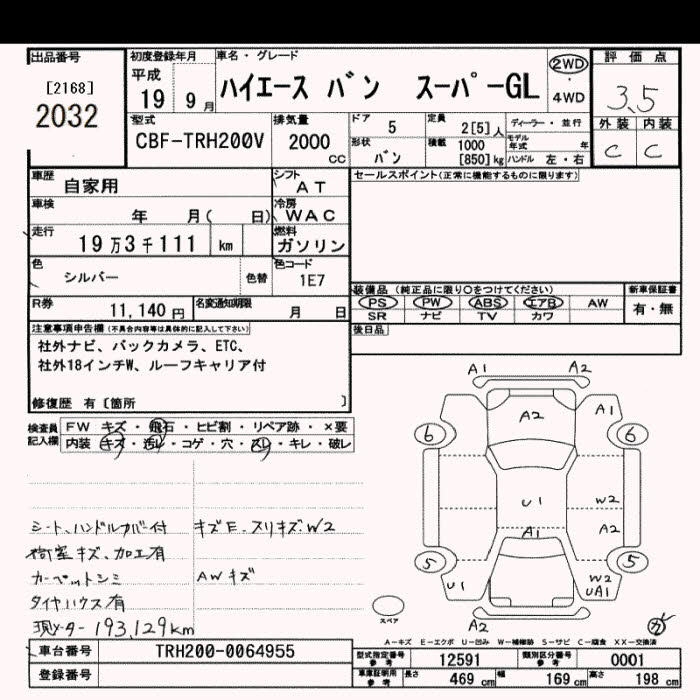 出品番号
[2168]
2032
初度登録年月
平成
19 9月
車名・グレード
ハイエース バン スーパーGL
2WD
4WD
評価点
3.5
外装 内装
C C
型式
CBF-TRH200V
排気量
2000
cc
ドア
5
定員
2[5]人
ディーラー・並行
形状
バン
積載
1000
[850]kg
モデル年式
年
ハンドル 左・右
車歴
自家用
シフト
AT
セールスポイント(正常に機能するものに限ります)
車検
年 月( 日)
冷房
WAC
走行
19万3千111 km
燃料
ガソリン
色
シルバー
色替
色コード
1E7
装備品(純正品に限り○をつけてください)
新車保証書
PS PW ABS エアB AW
有・無
SR ナビ TV カワ
R券
11,140円
名変通知期限
月 日
後日品
注意事項申告欄(不具合内容等は具体的に記入して下さい)
社外ナビ、バックカメラ、ETC、
社外18インチW、ルーフキャリア付
修復歴 有〔箇所 〕
検査員
記入欄
FW キズ・飛石・ヒビ割・リペア跡・×要
内装 キズ・汚レ・コゲ・穴・スレ・キレ・破レ
シート、ハンドルカバー付
キズE、スリキズ、W2
荷室キズ、加工有
カーペットシミ
AWキズ
タイヤハウス有
現メーター 193,129km
A1 A2
A2 A1
6 6
U1 W2
A1 A2
5 5
U1 W2
UA1
スペア
A2
ガ
A-キズ E-エクボ U-凹み W-補修跡 S-サビ C-腐食 XX-交換済
車台番号
TRH200-0064955
登録番号
型式指定番号
参考
12591
類別区分番号
参考
0001
車庫証明用
参考
長さ 469 cm
幅 169 cm
高さ 198 cm